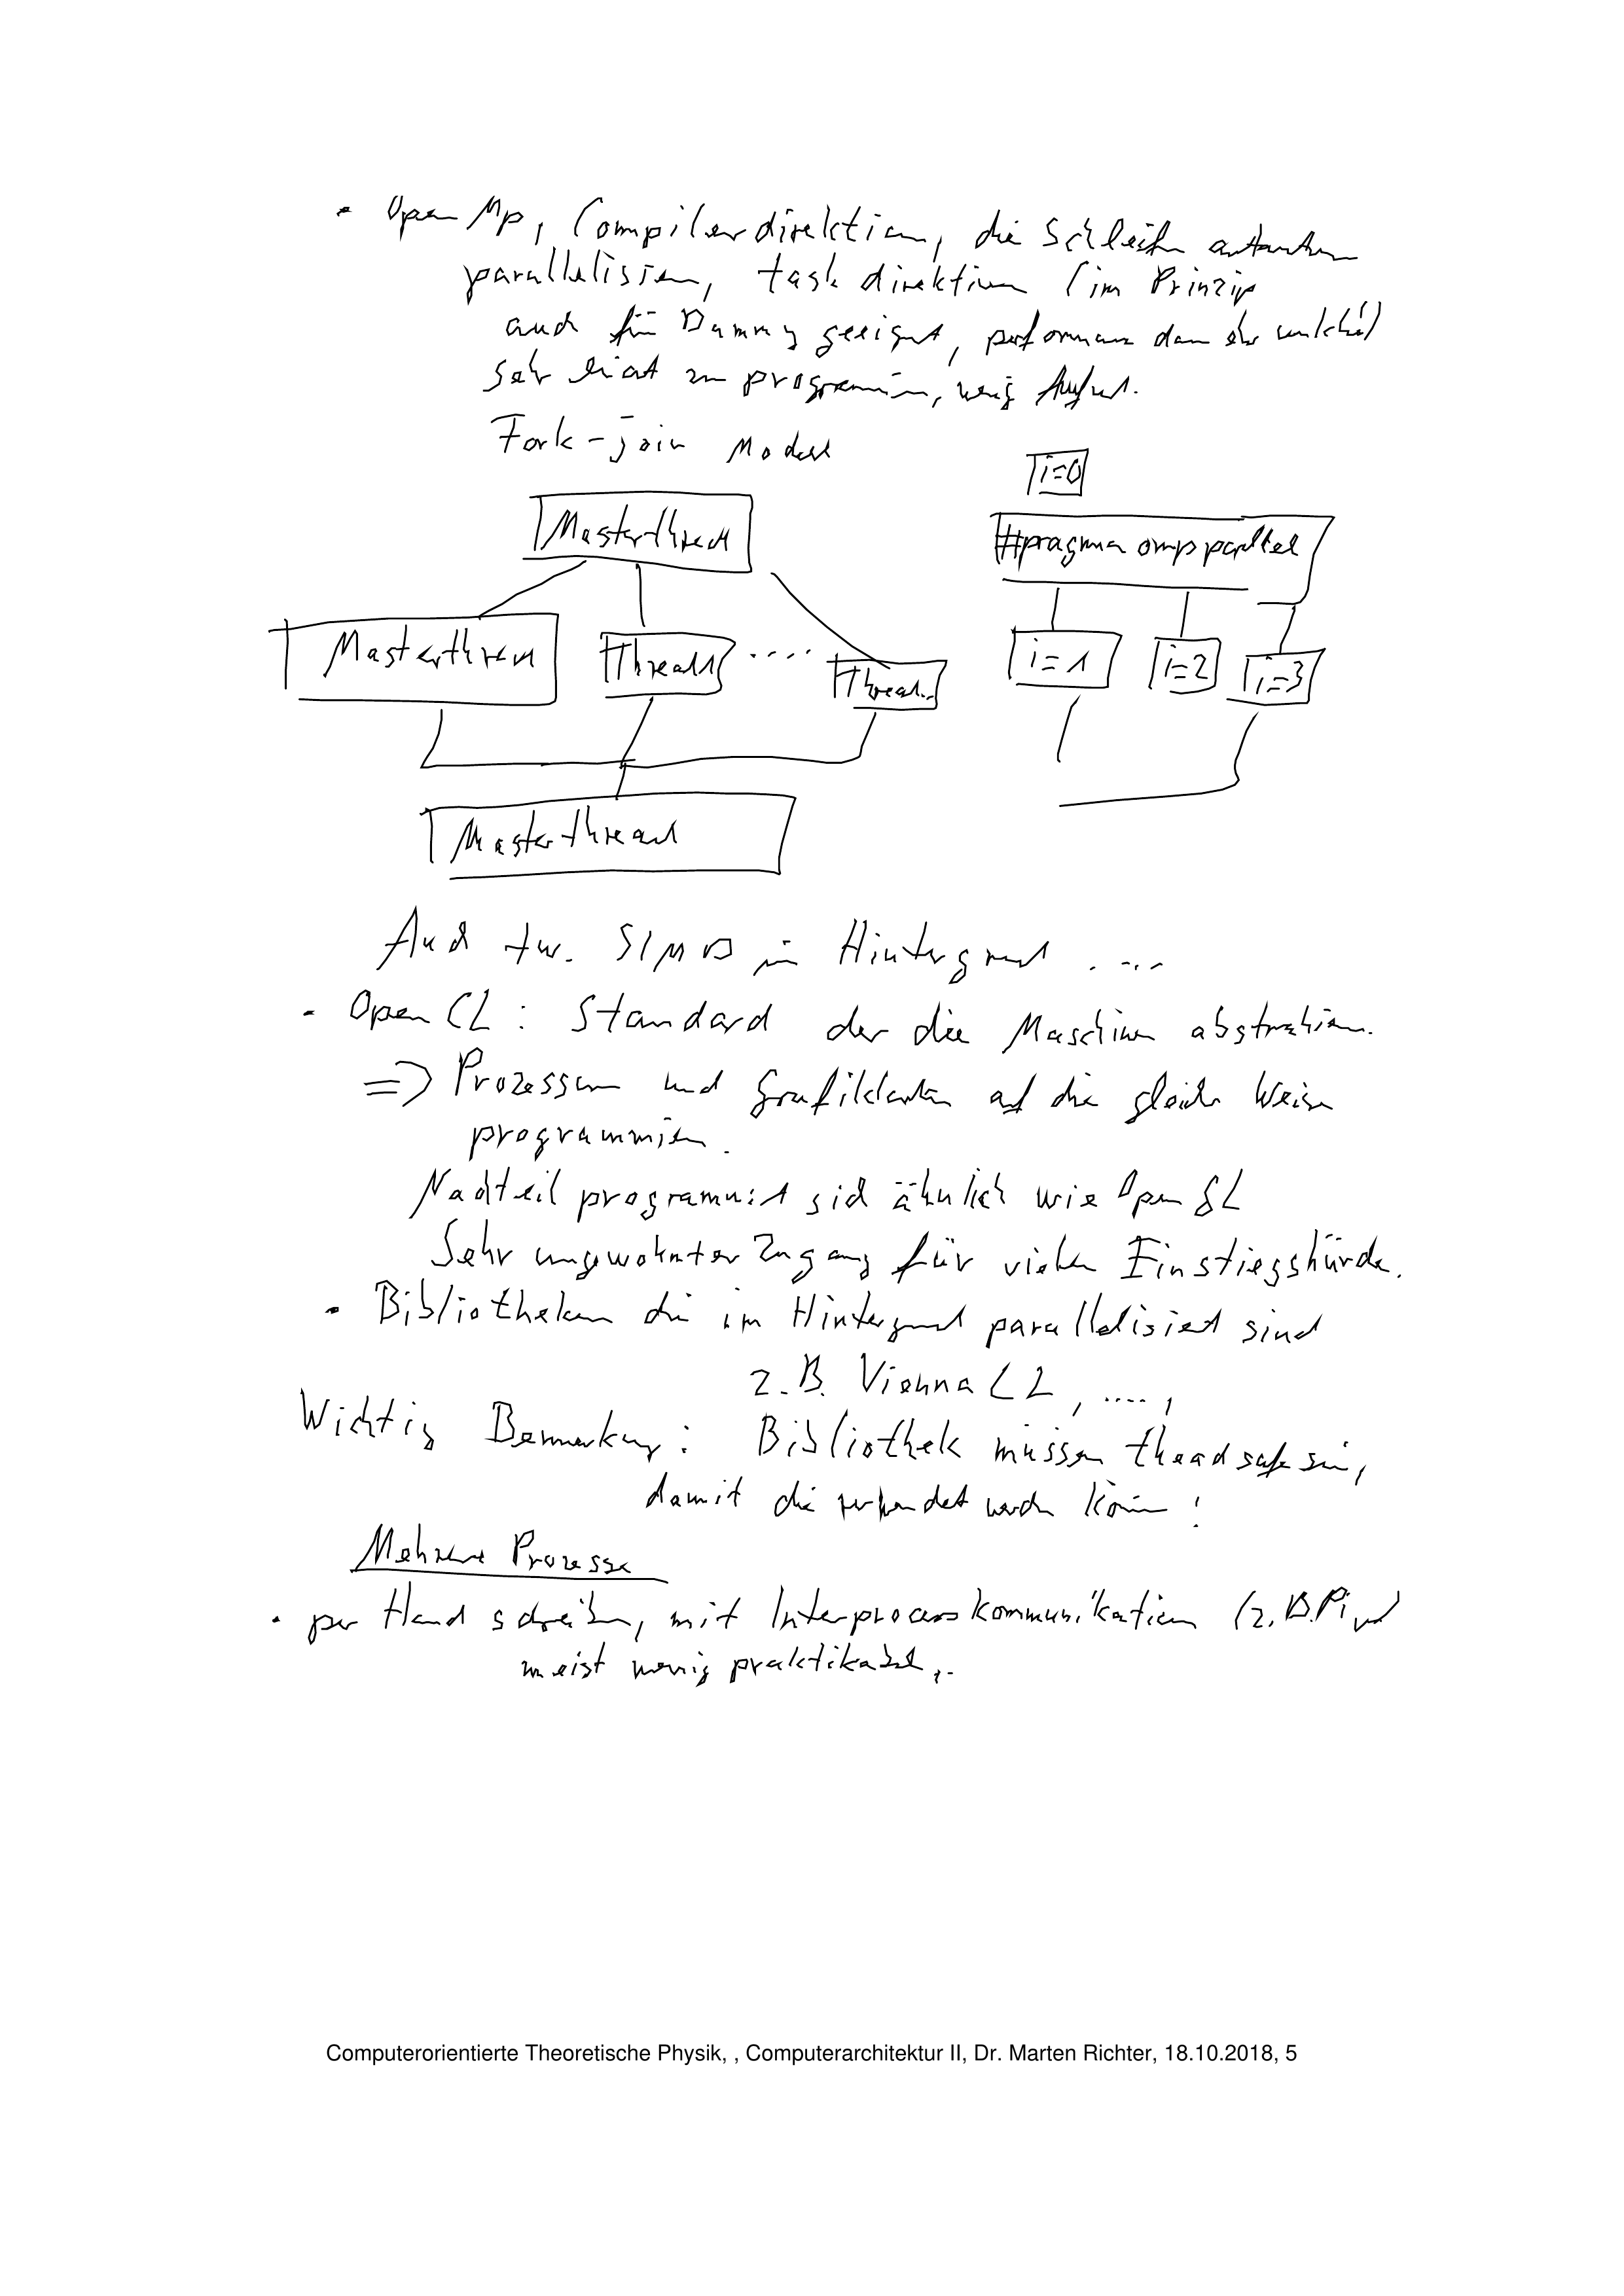 · OpenMp, Compilerdirektiven, die Schleifen automatisch
parallelisieren, task direktiven (im Prinzip
auch für Dummy geeignet, performanz dann eher
sehr leicht zu programmieren, wenig Aufwand.
Fork-join Modell
i=0
Masterthread
#pragma omp parallel
Masterthread Thread1 .... Thread..
i=1 i=2 i=3
Masterthread
Auch tw. SIMD im Hintergrund ....
· OpenCL: Standard der die Maschinen abstrahieren.
=> Prozessoren und Grafikkarten auf die gleiche Weise
programmieren.
Nachteil programmiert sich ähnlich wie OpenGL
Sehr ungewohnter Zugang für viele Einstiegshürde.
· Bibliotheken die im Hintergrund parallelisiert sind
z.B. ViennaCL, ....,
Wichtig Bemerkung: Bibliothek müssen theadsafe sein,
damit die verwendet werden können!
Mehrere Prozesse
· per Hand schreiben, mit Interprocesskommunikation (z.B. Pipes)
meist wenig praktikabel,.
Computerorientierte Theoretische Physik, , Computerarchitektur II, Dr. Marten Richter, 18.10.2018, 5